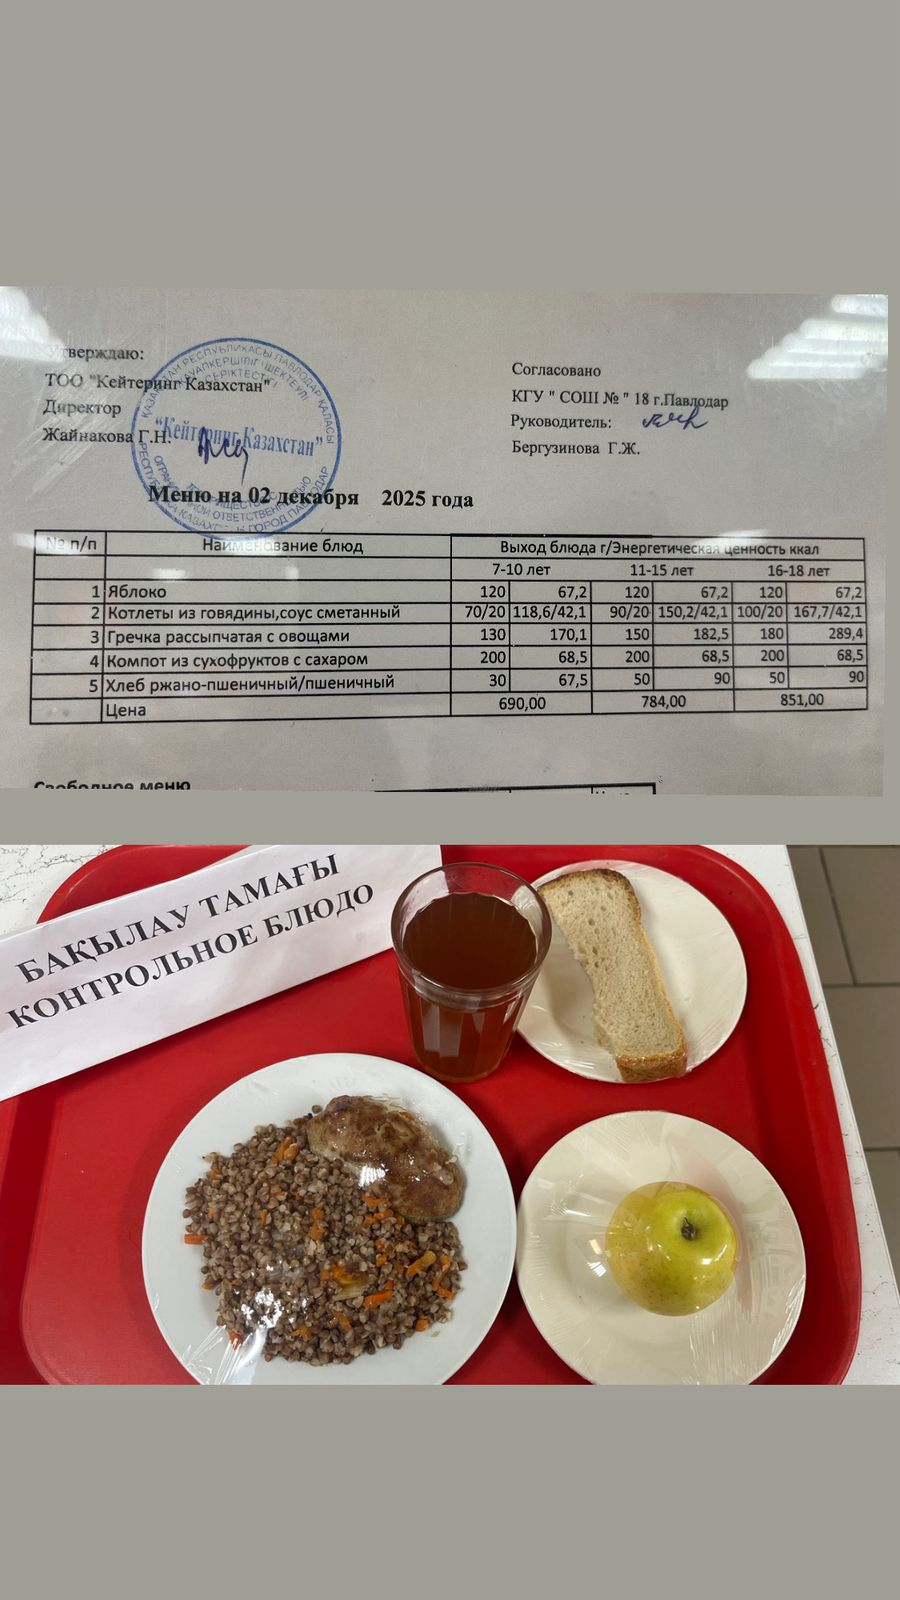 Утверждаю:
ТОО "Кейтеринг Казахстан"
Директор
Жайнакова Г.Н.
"Кейтеринг Казахстан"
Согласовано
КГУ " СОШ № " 18 г.Павлодар
Руководитель:
Бергузинова Г.Ж.
Меню на 02 декабря 2025 года
№ п/п Наименование блюд Выход блюда г/Энергетическая ценность ккал
7-10 лет 11-15 лет 16-18 лет
1 Яблоко 120 67,2 120 67,2 120 67,2
2 Котлеты из говядины,соус сметанный 70/20 118,6/42,1 90/20 150,2/42,1 100/20 167,7/42,1
3 Гречка рассыпчатая с овощами 130 170,1 150 182,5 180 289,4
4 Компот из сухофруктов с сахаром 200 68,5 200 68,5 200 68,5
5 Хлеб ржано-пшеничный/пшеничный 30 67,5 50 90 50 90
Цена 690,00 784,00 851,00
Свободное меню
БАҚЫЛАУ ТАМАҒЫ
КОНТРОЛЬНОЕ БЛЮДО